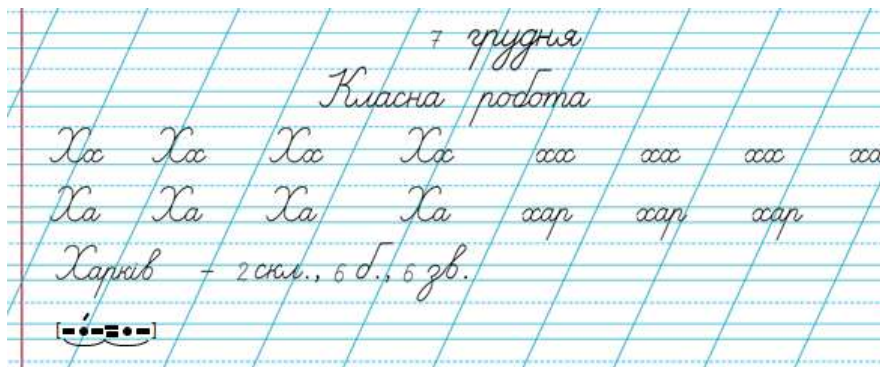 7 грудня
Класна робота
Хх Хх Хх Хх хх хх хх хх
Ха Ха Ха Ха хар хар хар
Харків – 2 скл., 6 б., 6 зв.
[–•́–=•–]